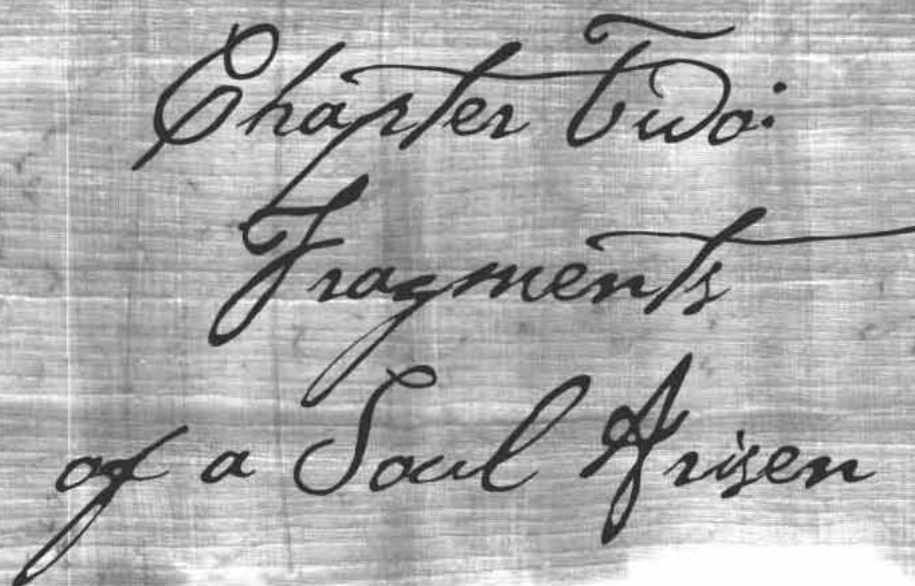 Chapter Two:
Fragments
of a Soul Arisen